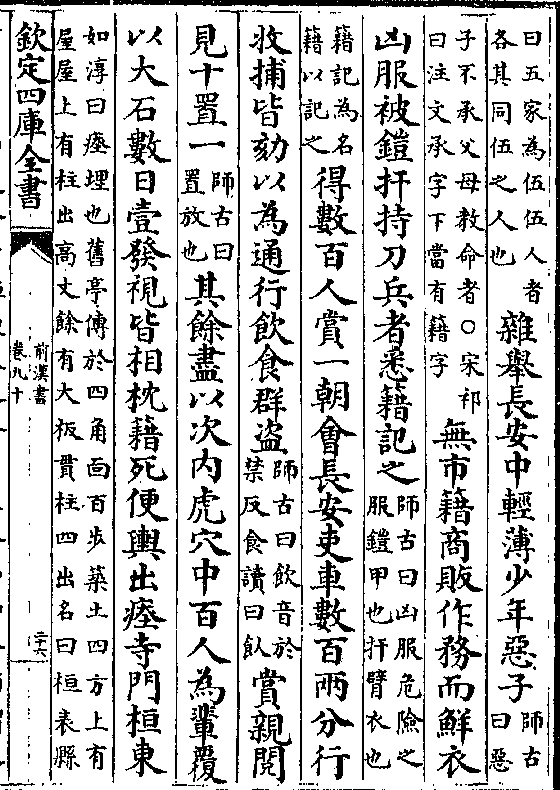 曰五家為伍伍人者
各其同伍之人也
雜舉長安中輕薄少年惡子
師古
曰惡
子不承父母教命者○宋祁
曰注文承字下當有籍字
無市籍商販作務而鮮衣
凶服被鎧扞持刀兵者悉籍記之
師古曰凶服危險之
服鎧甲也扞臂衣也
籍記為名
籍以記之
得數百人賞一朝會長安吏車數百兩分行
收捕皆劾以為通行飲食群盜
師古曰飲音於
禁反食讀曰飤
賞親閱
見十置一
師古曰
置放也
其餘盡以次内虎穴中百人為輩覆
以大石數日壹發視皆相枕藉死便輿出瘞寺門桓東
如淳曰瘞埋也舊亭傳於四角面百步築土四方上有
屋屋上有柱出高丈餘有大板貫柱四出名曰桓表縣
欽定四庫全書
前漢書
卷九十
二十六